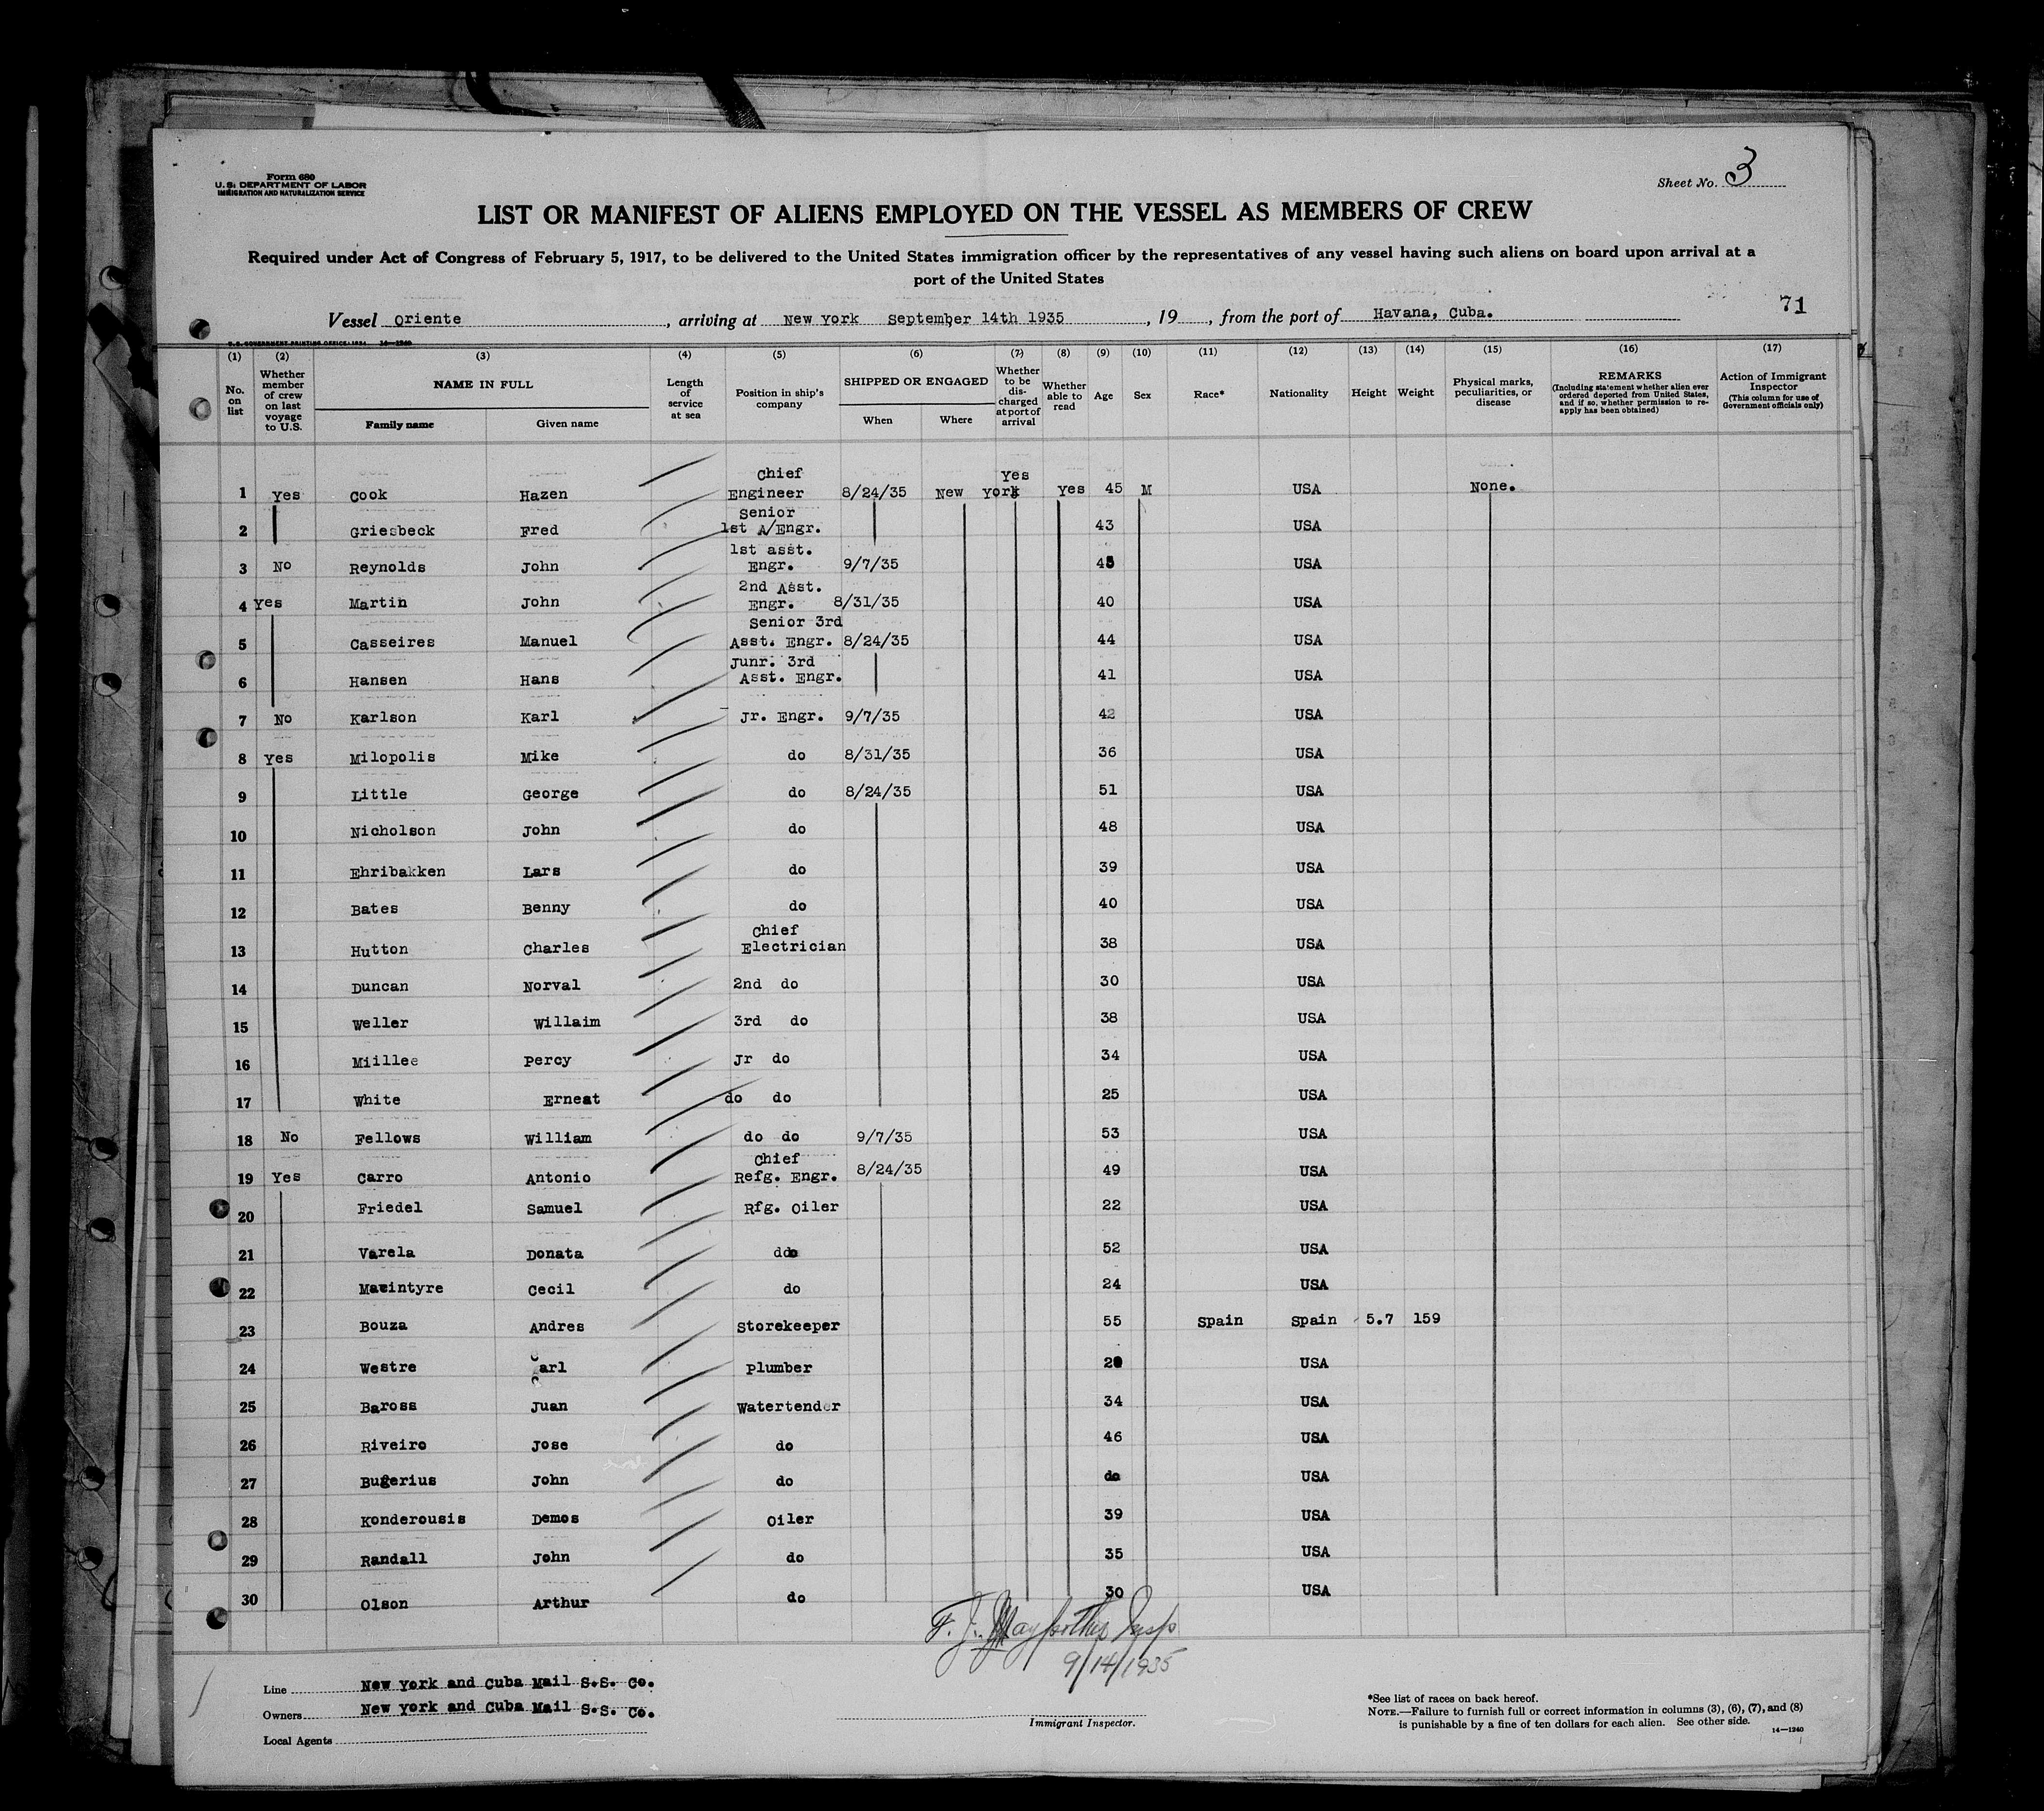 Form 680
U.S. DEPARTMENT OF LABOR
IMMIGRATION AND NATURALIZATION SERVICE
Sheet No. 3
LIST OR MANIFEST OF ALIENS EMPLOYED ON THE VESSEL AS MEMBERS OF CREW
Required under Act of Congress of February 5, 1917, to be delivered to the United States immigration officer by the representatives of any vessel having such aliens on board upon arrival at a
port of the United States
71
Vessel Oriente, arriving at New York September 14th 1935, 19, from the port of Havana, Cuba.
U.S. GOVERNMENT PRINTING OFFICE: 1934 14—1240
(1) (2) (3) (4) (5) (6) (7) (8) (9) (10) (11) (12) (13) (14) (15) (16) (17)
No. on list
Whether member of crew on last voyage to U.S.
NAME IN FULL
Family name Given name
Length of service at sea
Position in ship's company
SHIPPED OR ENGAGED
When Where
Whether to be discharged at port of arrival
Whether able to read
Age
Sex
Race*
Nationality
Height
Weight
Physical marks, peculiarities, or disease
REMARKS
(Including statement whether alien ever ordered deported from United States, and if so, whether permission to reapply has been obtained)
Action of Immigrant Inspector
(This column for use of Government officials only)
1 Yes Cook Hazen Chief Engineer 8/24/35 New York Yes Yes 45 M USA None.
2 Griesbeck Fred Senior 1st A/Engr. 43 USA
3 No Reynolds John 1st asst. Engr. 9/7/35 USA
4 Yes Martin John 2nd Asst. Engr. 8/31/35 40 USA
5 Casseires Manuel Senior 3rd Asst. Engr. 8/24/35 44 USA
6 Hansen Hans Junr. 3rd Asst. Engr. 41 USA
7 No Karlson Karl Jr. Engr. 9/7/35 42 USA
8 Yes Milopolis Mike do 8/31/35 36 USA
9 Little George do 8/24/35 51 USA
10 Nicholson John do 48 USA
11 Ehribakken Lars do 39 USA
12 Bates Benny do 40 USA
13 Hutton Charles Chief Electrician 38 USA
14 Duncan Norval 2nd do 30 USA
15 Weller Willaim 3rd do 38 USA
16 Miillee Percy Jr do 34 USA
17 White Erneat do do 25 USA
18 No Fellows William do do 9/7/35 53 USA
19 Yes Carro Antonio Chief Refg. Engr. 8/24/35 49 USA
20 Friedel Samuel Rfg. Oiler 22 USA
21 Varela Donata do 52 USA
22 Macintyre Cecil do 24 USA
23 Bouza Andres Storekeeper 55 Spain Spain 5.7 159
24 Westre Carl Plumber USA
25 Baross Juan Watertender 34 USA
26 Riveiro Jose do 46 USA
27 Bugerius John do do USA
28 Konderousis Demos Oiler 39 USA
29 Randall John do 35 USA
30 Olson Arthur do 30 USA
F. J. Insp
9/14/1935
Line New York and Cuba Mail S.S. Co.
Owners New York and Cuba Mail S.S. Co.
Local Agents
Immigrant Inspector.
*See list of races on back hereof.
NOTE.—Failure to furnish full or correct information in columns (3), (6), (7), and (8)
is punishable by a fine of ten dollars for each alien. See other side.
14—1240